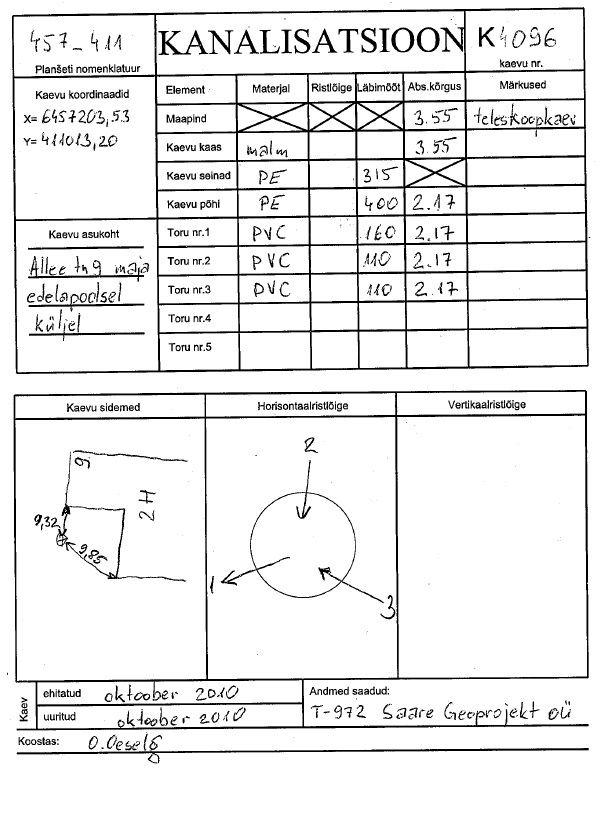 457-411
Planšeti nomenklatuur
KANALISATSIOON
K4096
kaevu nr.
Kaevu koordinaadid
X= 6457203,53
Y= 411013,20
Element Materjal Ristlõige Läbimõõt Abs.kõrgus Märkused
Maapind 3.55 teleskoopkaev
Kaevu kaas malm 3.55
Kaevu seinad PE 315
Kaevu põhi PE 400 2.17
Kaevu asukoht
Allee tn 9 maja
edelapoolsel
küljel
Toru nr.1 PVC 160 2.17
Toru nr.2 PVC 110 2.17
Toru nr.3 PVC 110 2.17
Toru nr.4
Toru nr.5
Kaevu sidemed Horisontaalristlõige Vertikaalristlõige
9
2H
9,32
9,85
2
1
3
Kaev
ehitatud oktoober 2010
uuritud oktoober 2010
Andmed saadud:
T-972 Saare Geoprojekt OÜ
Koostas: O.Oeselg